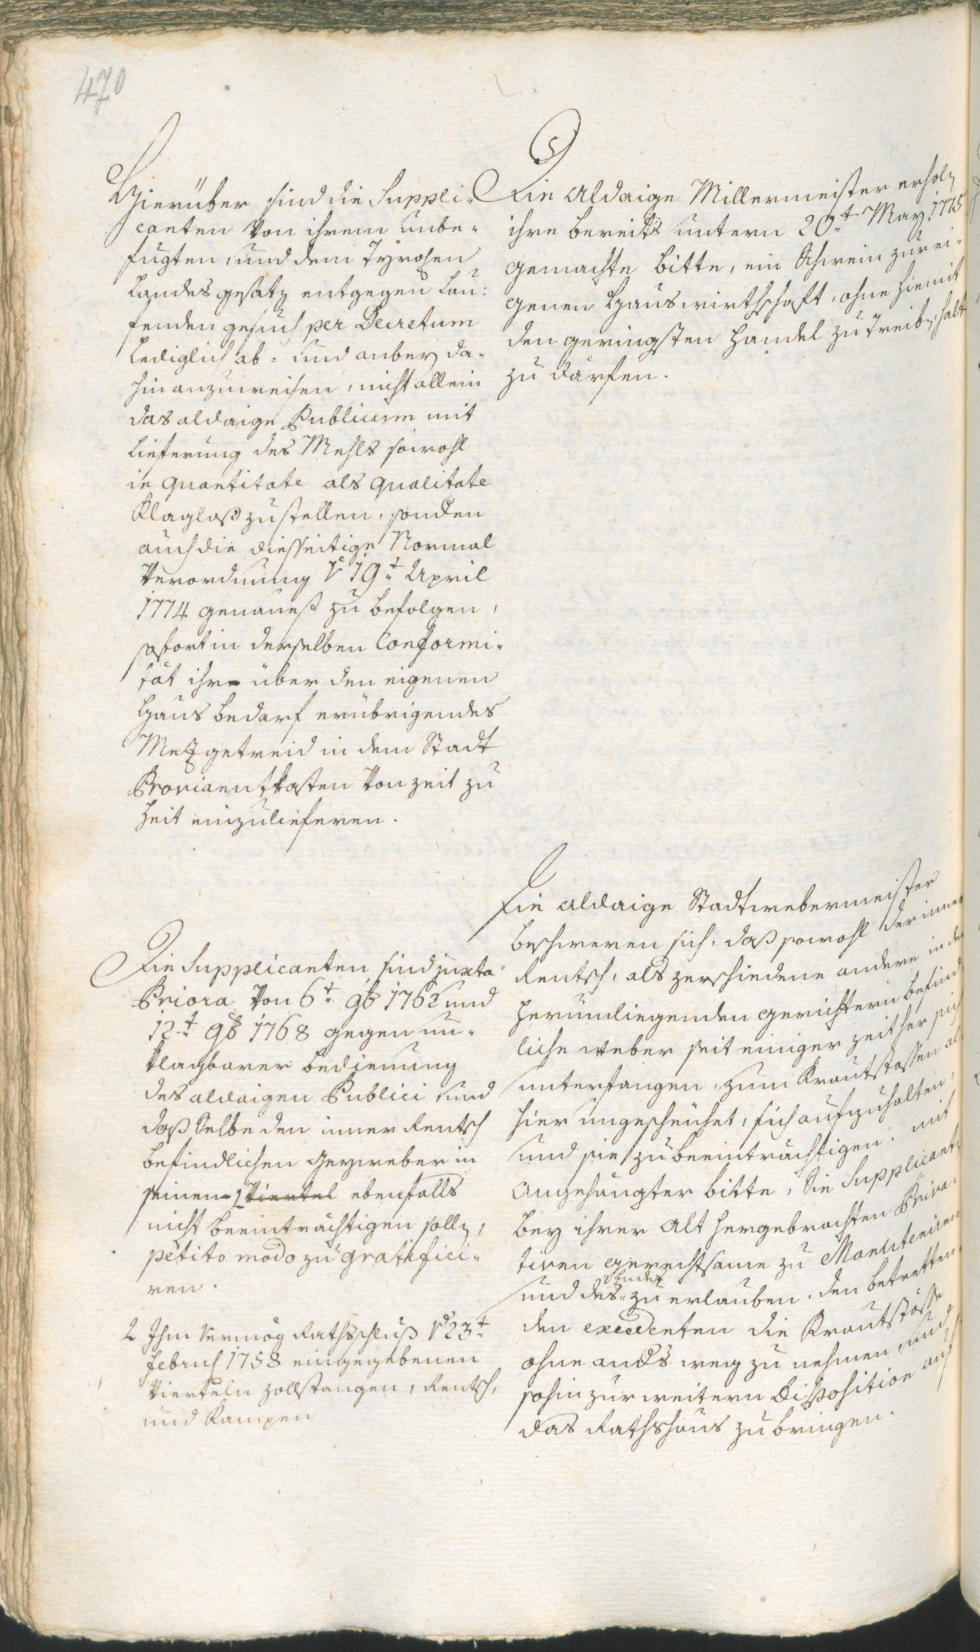 470
Hierüber sind die Suppli-
canten von ihrem unbe-
fugten, und dem Tÿrolen
Landesgesatz entgegen lau-
fenden gesuch per Decretum
lediglich ab- und anbeÿ da-
hin anzuweisen, nicht allein
das aldaige Publicum mit
lieferung des Mehls sowohl
in quantitate als qualitate
Klaglos zustellen, sonden
auch die diesseitige Normal
Verordnung v 19t April
1774 genauest zu befolgen,
sofort in derselben Conformi-
tät ihr über den eigenen
Hausbedarf erübrigendes
Metzgetreid in dem Stadt
Proviantkasten von zeit zu
Zeit einzulieferen.
Die Supplicanten sind juxta
Priora von 6t 9b 1762 und
12t 9b 1768 gegen un-
klagbarer bedienung
des aldaigen Publici und
daß Selbe den inner Rentsch
befindlichen Geyweber in
seinem Viertel ebenfalls
nicht beeinträchtigen solln,
petito modo zu gratifici-
ren.
2 Ihm vermög Rathsschluß v 23t
Februch 1758 eingegebenen
Vierteln Zollstangen, Rentsch,
und Kampen
5
Die Aldaige Millermeister erholn
ihre bereits untern 20t May 1775
gemachte bitte, ein Schwein zur ei-
genen Hauswirthschaft, ohne hiemit
den geringsten Handel zu treibn, halt
zu därfen.
Die aldaige Stadtwebermeister
beschweren sich, daß sowohl der inner
Rentsch, als zerschiedene andere in den
herumliegenden gerichtern befind
liche Weber seit einiger zeit her sich
unterfangen, zum Krautstossen al-
hier ungescheichet, sich aufzuhalten,
und sie zu beeinträchtigen: mit
Angehängter bitte, die Supplicantn
bey ihrer Alt hergebrachten Priva-
tiven gerechtsame zu Manuteniren
und des zu erlauben, den betretten
den excedenten die Krautstösse
ohne anders weg zu nehmen, und
sohin zur weitern Disposition auf
das Rathshaus zu bringen.